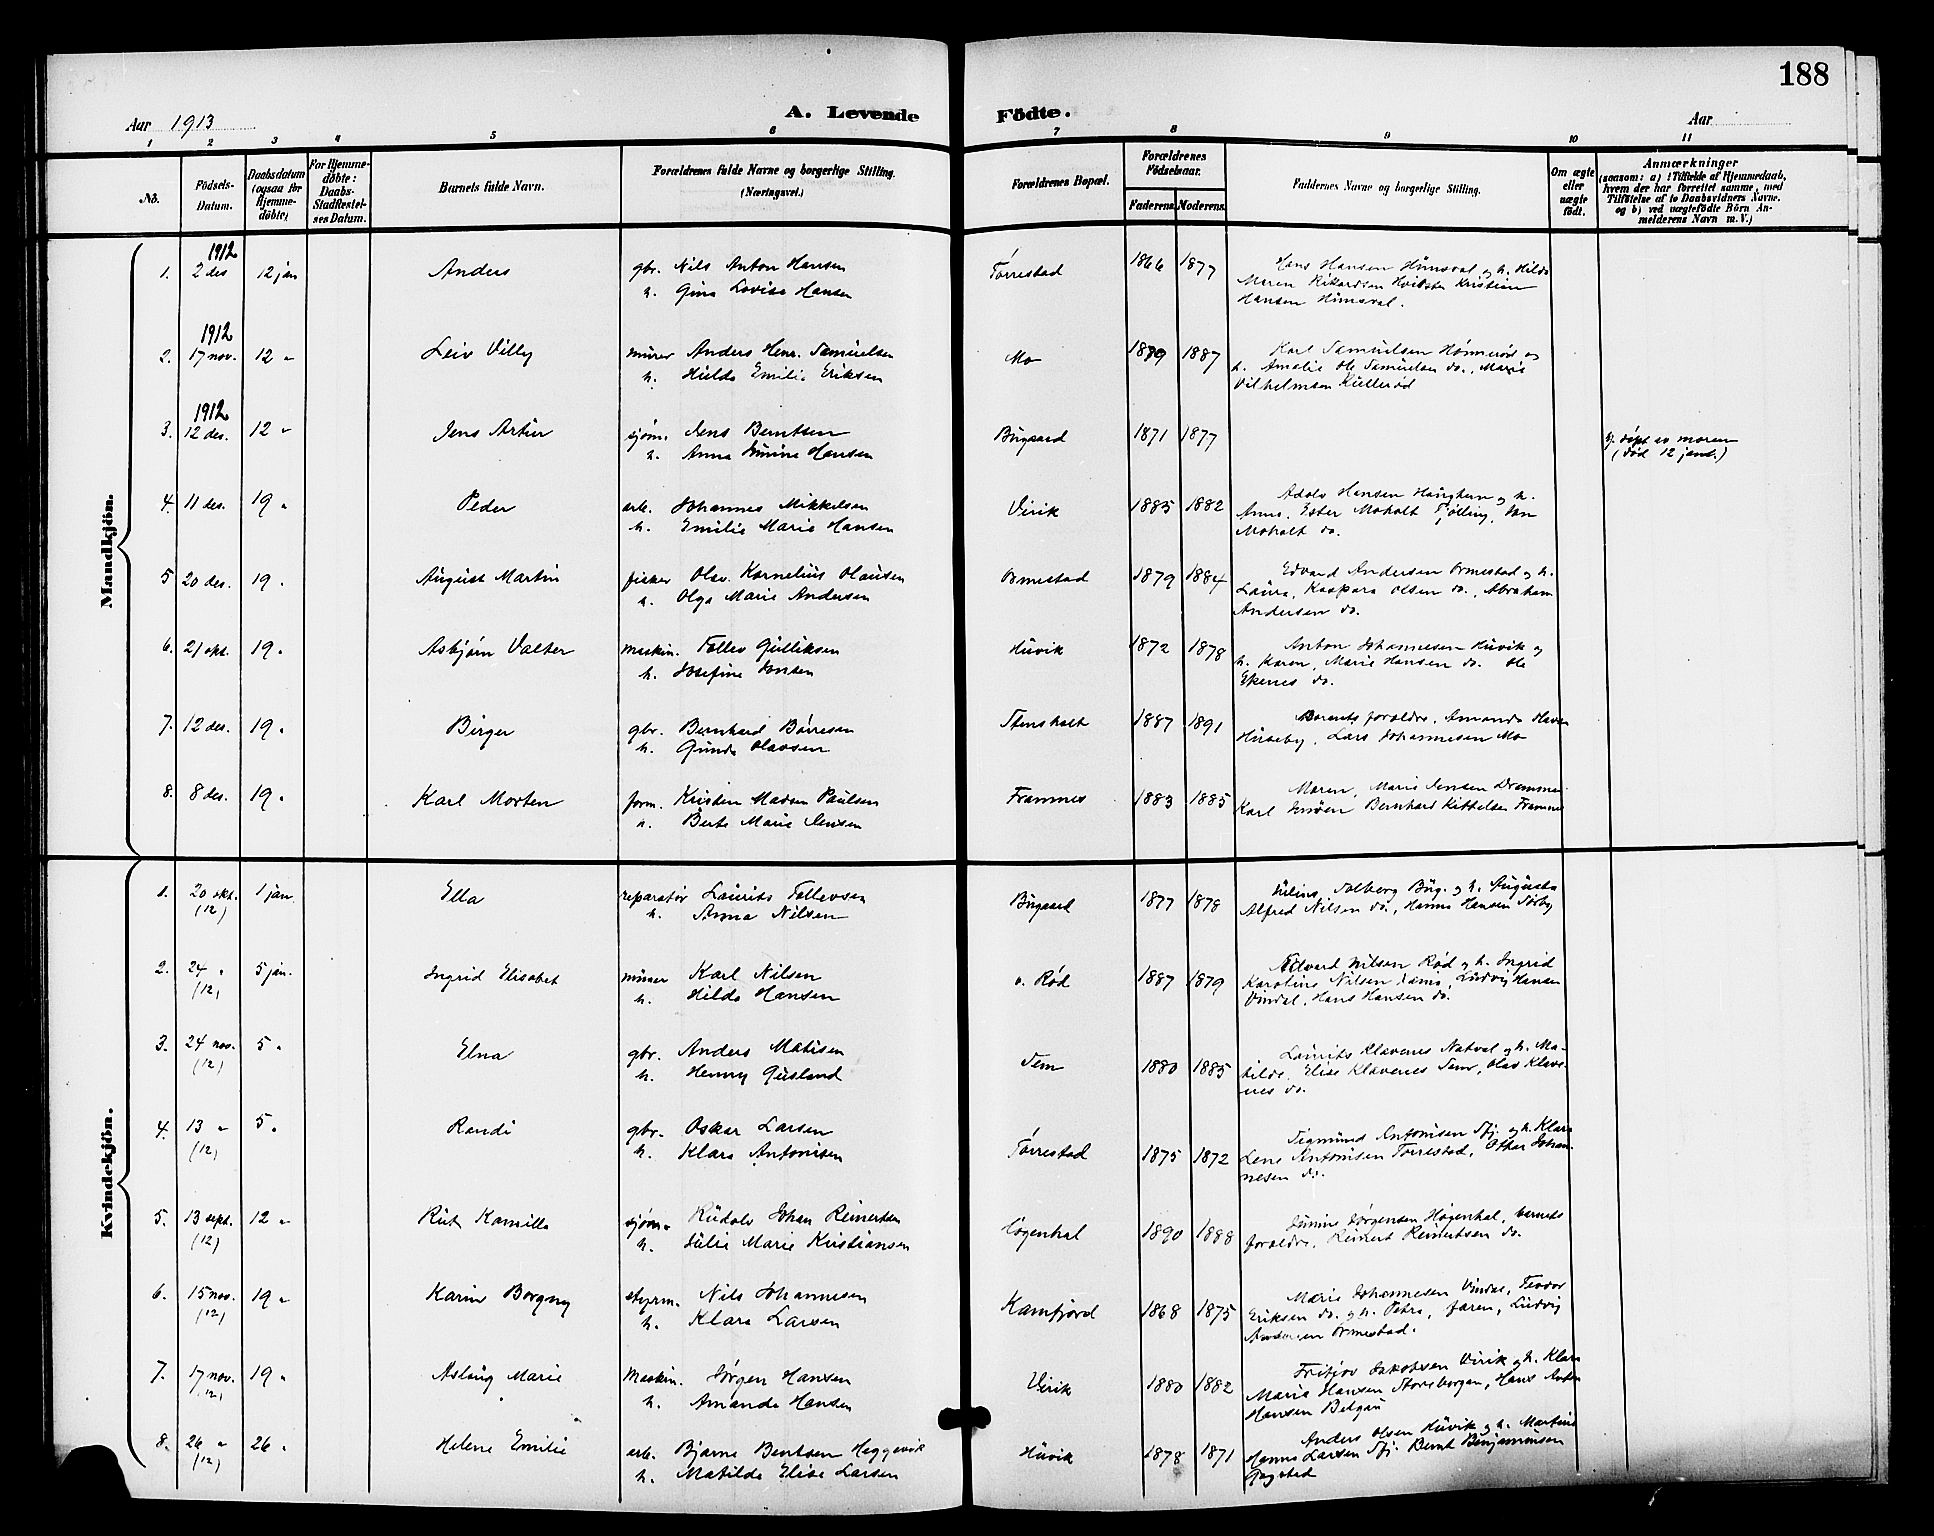 188
Aar 1913
A. Levende Födte.
Aar
1 2 3 4 5 6 7 8 9 10 11
No.
Födsels-Datum.
Daabsdatum (ogsaa for Hjemme-döbte)
For Hjemme-döbte: Daabs-Stadfæstel-ses Datum.
Barnets fulde Navn.
Forældrenes fulde Navne og borgerlige Stilling. (Næringsvei.)
Forældrenes Bopæl.
Forældrenes Födselsaar.
Faderens Moderens
Faddernes Navne og borgerlige Stilling.
Om ægte eller uægte født.
Anmærkninger
(saasom: a) i Tilfælde af Hjemmedaab,
hvem der har forrettet samme, med
Tilføielse af to Daabsvidners Navne,
og b) ved uægtefødte Börn An-
melderens Navn m. V.)
Mandkjön.
1912
1. 2 des 12 jan Anders gbr. Nils Anton Hansen Tørrestad 1866 1877 Hans Hansen Himsval og h. Hilda
h. Gina Lovise Hansen Maren Rikardsen Kristian
Hansen Himsval.
1912
2. 17 nov. 12 " Leiv Villy murer Anders Henr. Samuelsen Mo 1879 1887 Karl Samuelsen og
h. Hulda Emilie Eriksen h. Amalie Ole Samuelsen do., Marie
Vilhelmsen
1912
3. 12 des. 12 " Jens Artur sjøm. Jens Berntsen Bugaard 1871 1877 hj. døpt av moren
h. Anna Hansen (død 12 jan.)
4. 11 des. 19 " Peder arb. Johannes Mikkelsen Virik 1885 1882 Adolv Hansen Haughem og h.
h. Emilie Marie Hansen Anna, Ester Moholt Tjølling,
Moholt do.
5 20 des. 19 " August Martin fisker Olav Kornelius Olausen Ormestad 1879 1884 Edvard Andersen Ormestad og h.
h. Olga Marie Andersen Laura, Kaspara Olsen do., Abraham
Andersen do.
6. 21 okt. 19 " Asbjørn Valter maskin. Tollev Gulliksen Huvik 1872 1878 Anton Johannesen Huvik og
h. Josefine Jonsen h. Karen, Marie Hansen do. Ole
Ekenes do.
7. 12 des. 19 " Birger gbr. Bernhard Børresen Stensholt 1887 1891 Barnets foreldre, Amanda
h. Gunda Olavsen Huseby, Lars Johannesen Mo
8. 8 des. 19 " Karl Morten form. Kristen Madsen Paulsen Framnes 1883 1885 Maren, Marie Jensen Drammen
h. Berte Marie Jensen Karl Bernhard Kittelsen Framnes
Kvindekjön.
1. 20 okt. 1 jan Ella reparatør Laurits Tollevsen Bugaard 1877 1878 Julius Solberg Bug. og h. Augusta
(12) h. Anna Nilsen Alfred Nilsen do., Hanna Hansen
2. 24 " 5 jan. Ingrid Elisabet murer Karl Nilsen ø. Rød 1887 1879 Edvard Nilsen Rød og h. Ingrid
(12) h. Hilda Hansen Karoline Nilsen Ludvig Hansen
Vindal, Hans Hansen do.
3. 24 nov. 5 " Elna gbr. Anders Matisen Sem 1880 1885 Laurits Klavenes Natval og h. Ma-
(12) h. Henny Gusland tilde, Elise Klavenes Sem, Olav Klave-
nes do.
4. 13 " 5 " Randi gbr. Oskar Larsen Tørrestad 1875 1872 Sigmund Antonisen Sfj. og h. Klara
(12) h. Klara Antonisen Lene Antonisen Tørrestad, Otar Johan-
nesen do.
5. 13 sept. 12 " Rut Kamilla sjøm. Rudolv Johan Reinertsen Høgenhal 1890 1888 Jørgensen Høgenhal, barnets
(12) h. Julie Marie Kristiansen foreldre, Reinert Reinertsen do.
6. 15 nov. 19 " Karin Borgny styrm. Nils Johannesen Kamfjord 1868 1875 Marie Johannesen Vindal, Teodor
(12) h. Klara Larsen Eriksen do. og h. Petra, faren, Ludvig
Andersen Ormestad.
7. 17 nov. 19 " Aslaug Marie maskin. Jørgen Hansen Virik 1880 1882 Fritjov Jakobsen Virik og h. Klara
(12) h. Amanda Hansen Maria Hansen Storebergan, Hans Anton
Hansen Belgau
8. 26 " 26 " Helene Emilie arb. Bjarne Bentsen Heggevik Huvik 1878 1871 Anders Olsen Huvik og h. Martine
(12) h. Matilde Elise Larsen Hanna Larsen Sfj. Bernt Benjaminsen
Gogstad